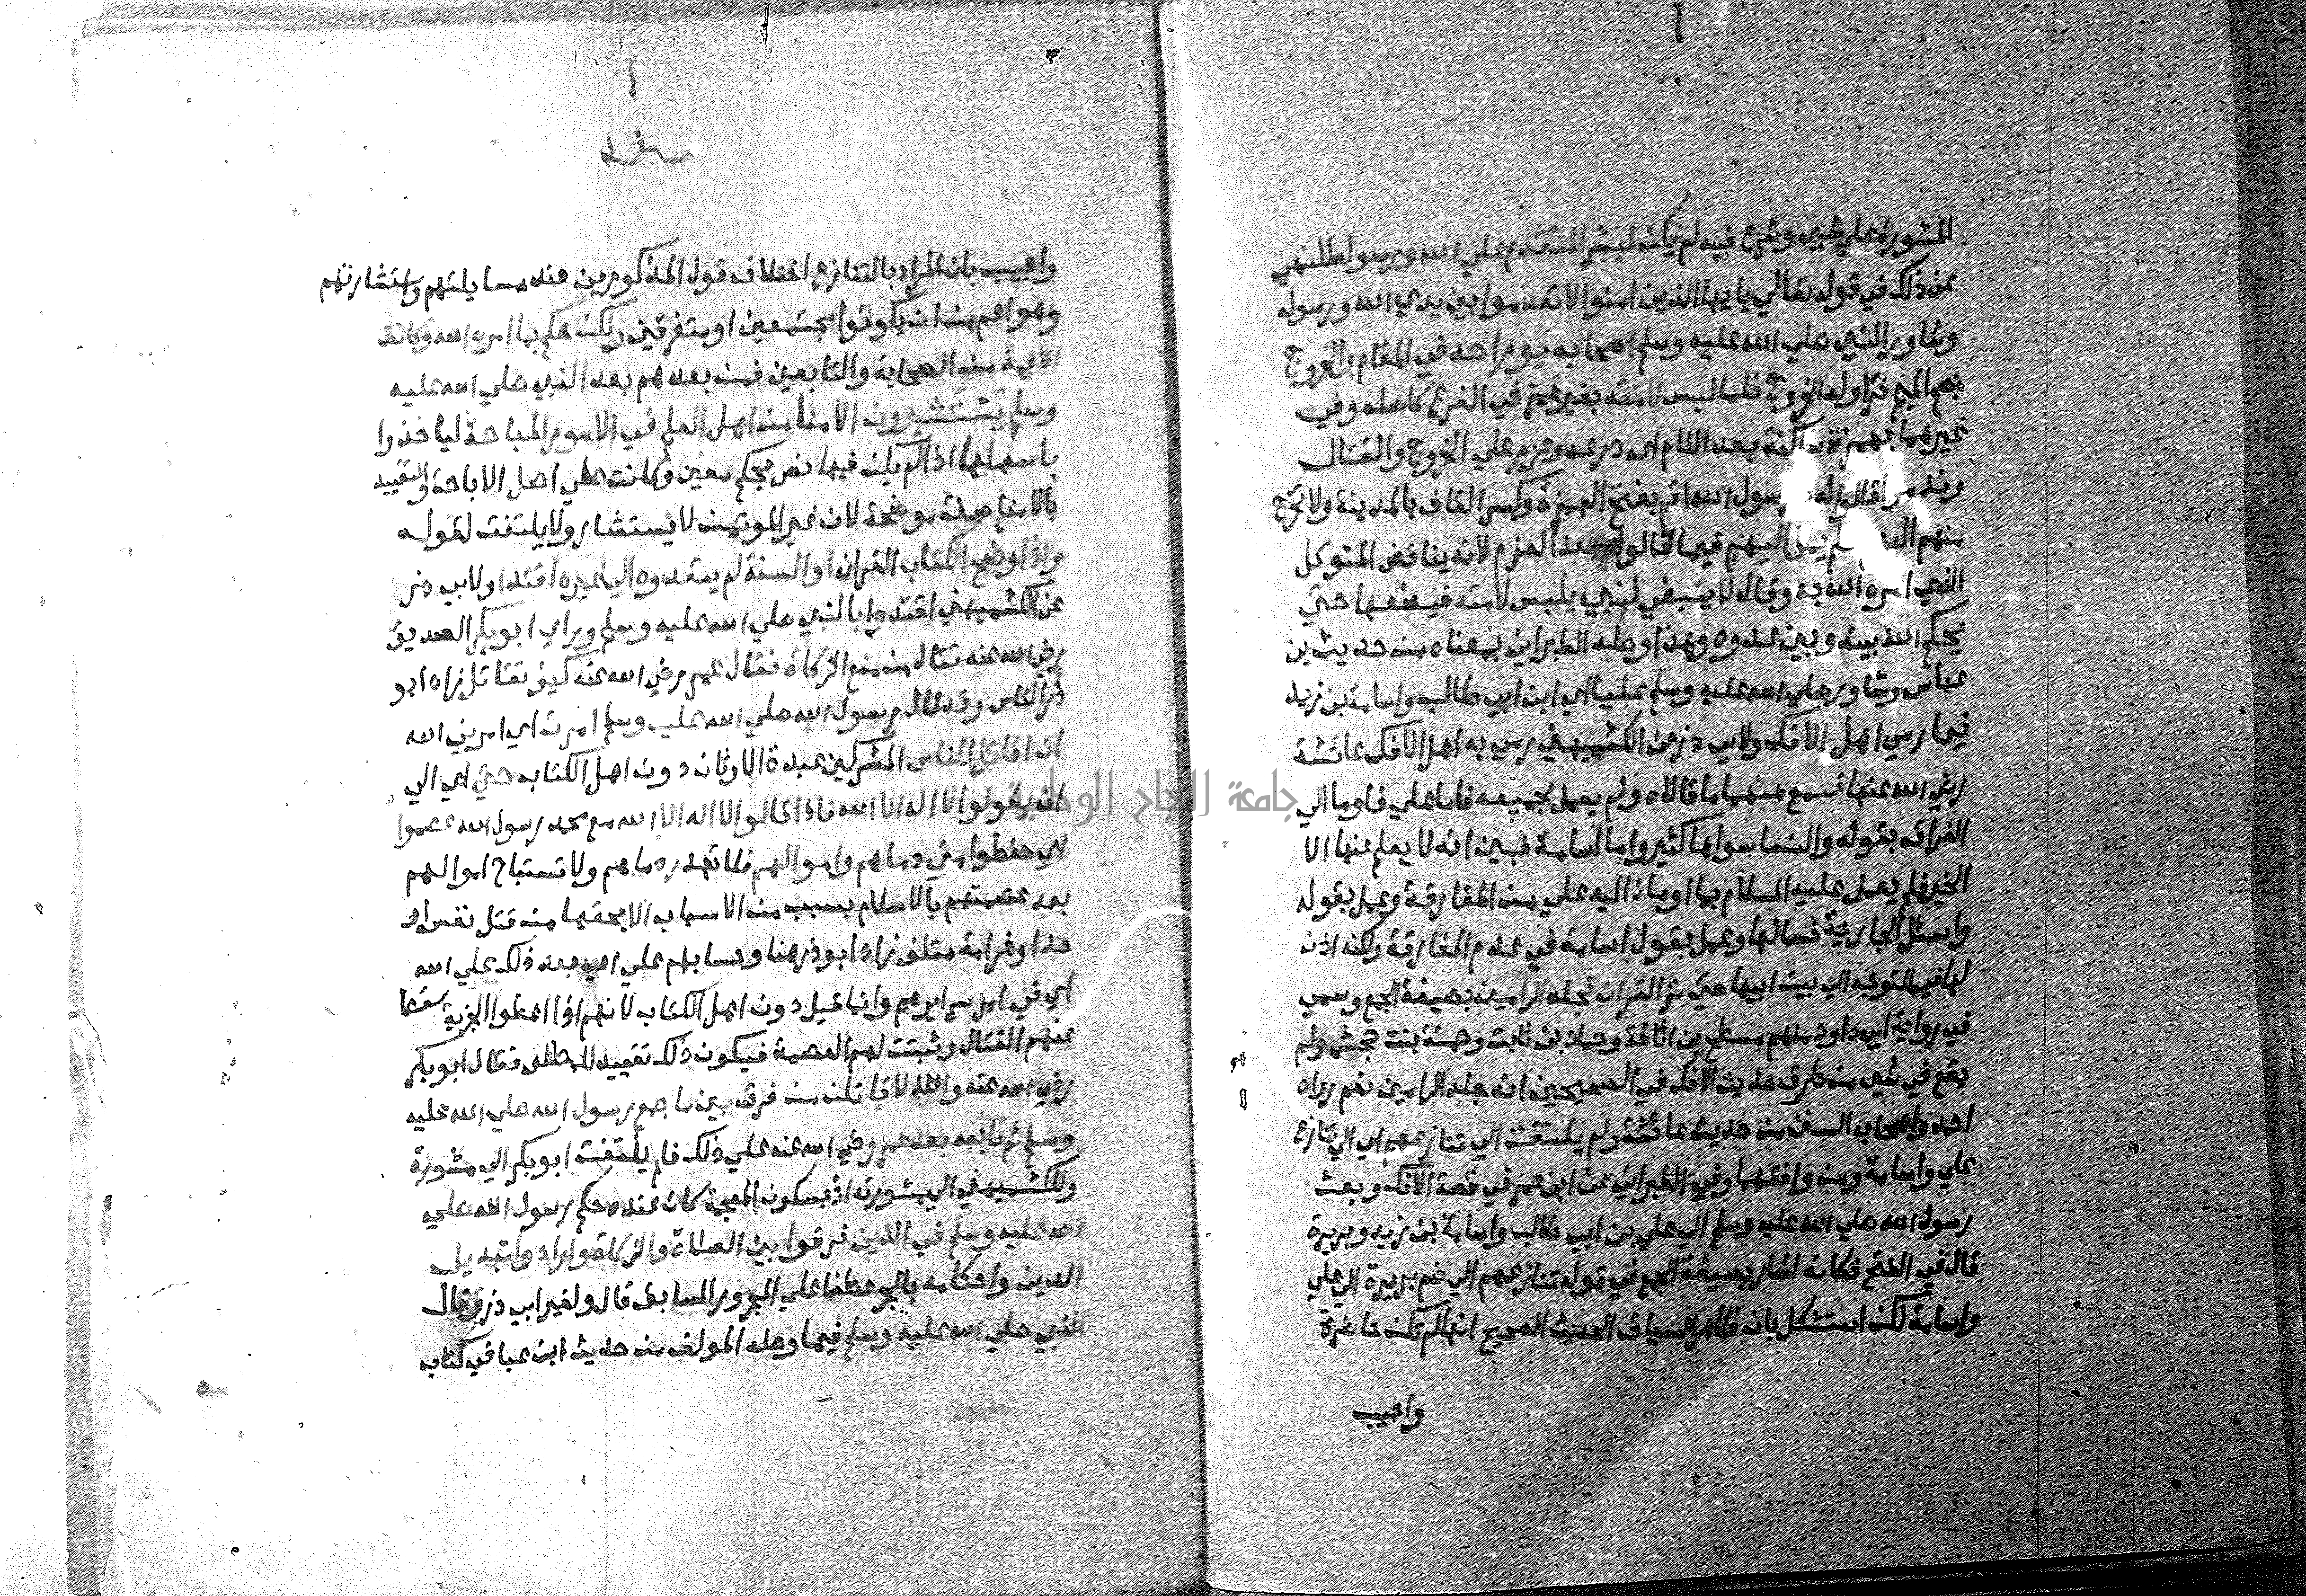 المشورة علي شي وشرع فيه لم يكن لبشر التقدم علي الله ورسوله للنهي
عن ذلك في قوله تعالي يايها الذين امنوا لا تقدموا بين يدي الله ورسوله
وشاور النبي صلي الله عليه وسلم اصحابه يوم احد في المقام والخروج
بضم الميم فراوا له الخروج فلما لبس لامته بغير همز في الفرع كاصله وفي
غيرهما بهمزة ساكنة بعد اللام اي درعه وعزم علي الخروج والقتال
وندموا قالوا له رسول الله اقم بفتح الهمزة وكسر القاف بالمدينة ولا تخرج
منهم اليهم فلم يمل اليهم فيما قالوه بعد العزم لانه يناقض التوكل
الذي امره الله به وقال لا ينبغي لنبي يلبس لامته فيضعها حتي
يحكم الله بينه وبين عدوه وهذا وصله الطبراني بمعناه من حديث بن
عباس وشاور صلي الله عليه وسلم عليا اي ابن ابي طالب واسامة بن زيد
فيما رمي اهل الافك ولابي ذر عن الكشميهني رمي به اهل الافك عائشة
رضي الله عنها فسمع منهما ما قالاه ولم يعمل بجميعه فاما علي فاوما الي
الفراق بقوله والنسا سواها كثير واما اسامة فبين انه لا يعلم عنها الا
الخير فلم يعمل عليه السلام بما اوما اليه علي من المفارقة وعمل بقوله
واسئل الجارية فسالها وعمل بقول اسامة في عدم المفارقة ولكنه اذن
لها في التوجه الي بيت ابيها حتي نزل القران فجلد الرامين بصيغة الجمع وسمي
في رواية ابي داود منهم مسطح بن اثاثة وحسان بن ثابت وحمنة بنت جحش ولم
يقع في شي من طرق حديث الافك في الصحيحين انه جلد الرامين نعم رواه
احمد واصحاب السنن من حديث عائشة ولم يلتفت الي تنازعهم اي الي تنازع
علي واسامة ومن وافقهما وفي الطبراني عن ابن عمر في قصة الافك وبعث
رسول الله صلي الله عليه وسلم الي علي بن ابي طالب واسامة بن زيد وبريرة
قال في الفتح فكانه اشار بصيغة الجمع في قوله تنازعهم الي ضم بريرة الي علي
واسامة لكن استشكل بان ظاهر السياق الحديث الصحيح انها لم تكن حاضرة
واجيب
واجيب بان المراد بالتنازع اختلاف قول المذكورين عند مسايلتهم واستشارتهم
وهو اعم من ان يكونوا مجتمعين او متفرقين ولكن حكم بما امره الله وكانت
الايمة من الصحابة والتابعين فمن بعدهم بعد النبي صلي الله عليه
وسلم يستشيرون الامنا من اهل العلم في الامور المباحة لياخذوا
باسهلها اذا لم يكن فيها نص بحكم معين وكانت علي اصل الاباحة والتقييد
بالامنا صفة موضحة لان غير الموتمن لا يستشار ولا يلتفت لقوله
واذا وضح الكتاب القران او السنة لم يتعدوه الي غيره اقتدا ولابي ذر
عن الكشميهني اقتدوا بالنبي صلي الله عليه وسلم وراي ابو بكر الصديق
رضي الله عنه قتال من منع الزكاة فقال عمر رضي الله عنه كيف تقاتل زاد ابو
ذر الناس وقد قال رسول الله صلي الله عليه وسلم امرت اي امرني الله
ان اقاتل الناس المشركين عبدة الاوثان دون اهل الكتاب حتي اي الي
ان يقولوا لا اله الا الله فاذا قالوا لا اله الا الله مع محمد رسول الله عصموا
اي حفظوا مني دماهم واموالهم فلا تهدر دماهم ولا تستباح اموالهم
بعد عصمتهم بالاسلام بسبب من الاسباب الا بحقها من قتل نفس او
حد او غرامة متلف زاد ابو ذر هنا وحسابهم علي اي بعد ذلك علي الله
اي في امر سرايرهم وانما قيل دون اهل الكتاب لانهم اذا اعطوا الجزية سقط
عنهم القتال وثبتت لهم العصمة فيكون ذلك تقييد للمطلق فقال ابو بكر
رضي الله عنه والله لاقاتلن من فرق بين ما جمع رسول الله صلي الله عليه
وسلم ثم تابعه بعد عمر رضي الله عنه علي ذلك فلم يلتفت ابو بكر الي مشورة
وللكشميهني الي مشورته اذ بسكون المعجمة كان عنده حكم رسول الله صلي
الله عليه وسلم في الذين فرقوا بين الصلاة والزكاة وارادوا تبديل
الدين واحكامه بالجر عطفا علي المجرور السابق قال ولغير ابي ذر وقال
النبي صلي الله عليه وسلم فيما وصله المولف من حديث ابن عباس في كتاب
جامعة النجاح الوطنية